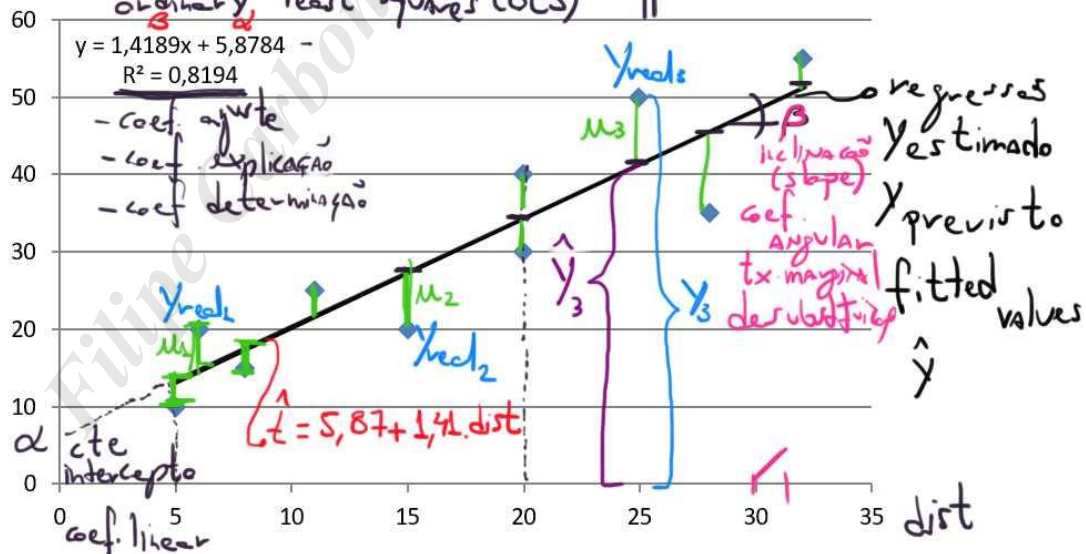 ordinary least squares (OLS)
β α
y = 1,4189x + 5,8784
R² = 0,8194
- coef. ajuste
- coef. explicação
- coef determinação
60
50
40
30
20
10
0
0 5 10 15 20 25 30 35
dist
Yreal1
μ1
μ2
Yreal2
Yreal3
μ3
Ŷ3
Y3
t̂ = 5,87 + 1,41 . dist
α cte
intercepto
coef. linear
β
inclinação
(slope)
coef.
angular
tx. marginal
Y estimado
Y previsto
fitted values
Ŷ
Filipe